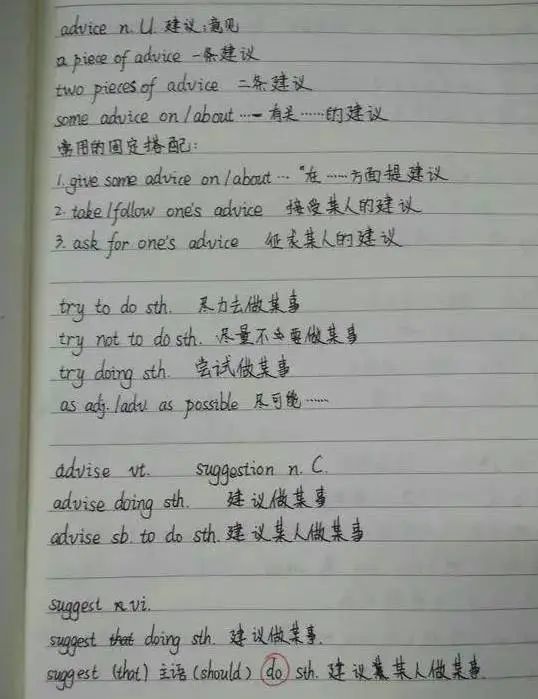 advice n. U. 建议;意见
a piece of advice 一条建议
two pieces of advice 二条建议
some advice on / about …… 有关……的建议
常用的固定搭配:
1. give some advice on / about … "在……方面提建议
2. take / follow one's advice 接受某人的建议
3. ask for one's advice 征求某人的建议
try to do sth. 尽力去做某事
try not to do sth. 尽量不要做某事
try doing sth. 尝试做某事
as adj. / adv as possible 尽可能……
advise vt. suggestion n. C.
advise doing sth. 建议做某事
advise sb. to do sth. 建议某人做某事
suggest vi.
suggest that doing sth. 建议做某事.
suggest (that) 主语 (should) do sth. 建议某人做某事.